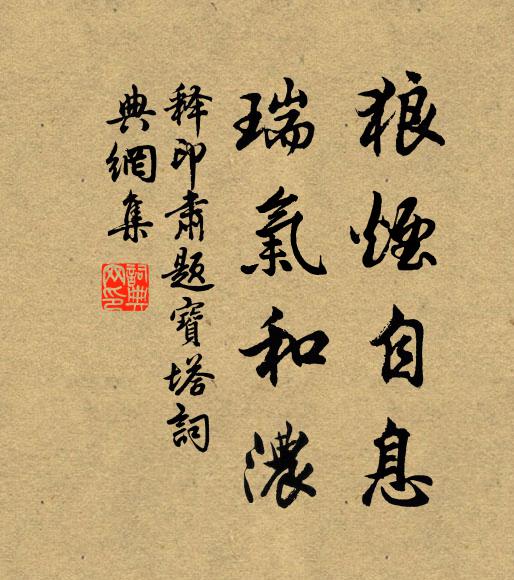 狼煙自息
瑞氣和濃
釋印肅題寶塔詞
典網集
詞典網印